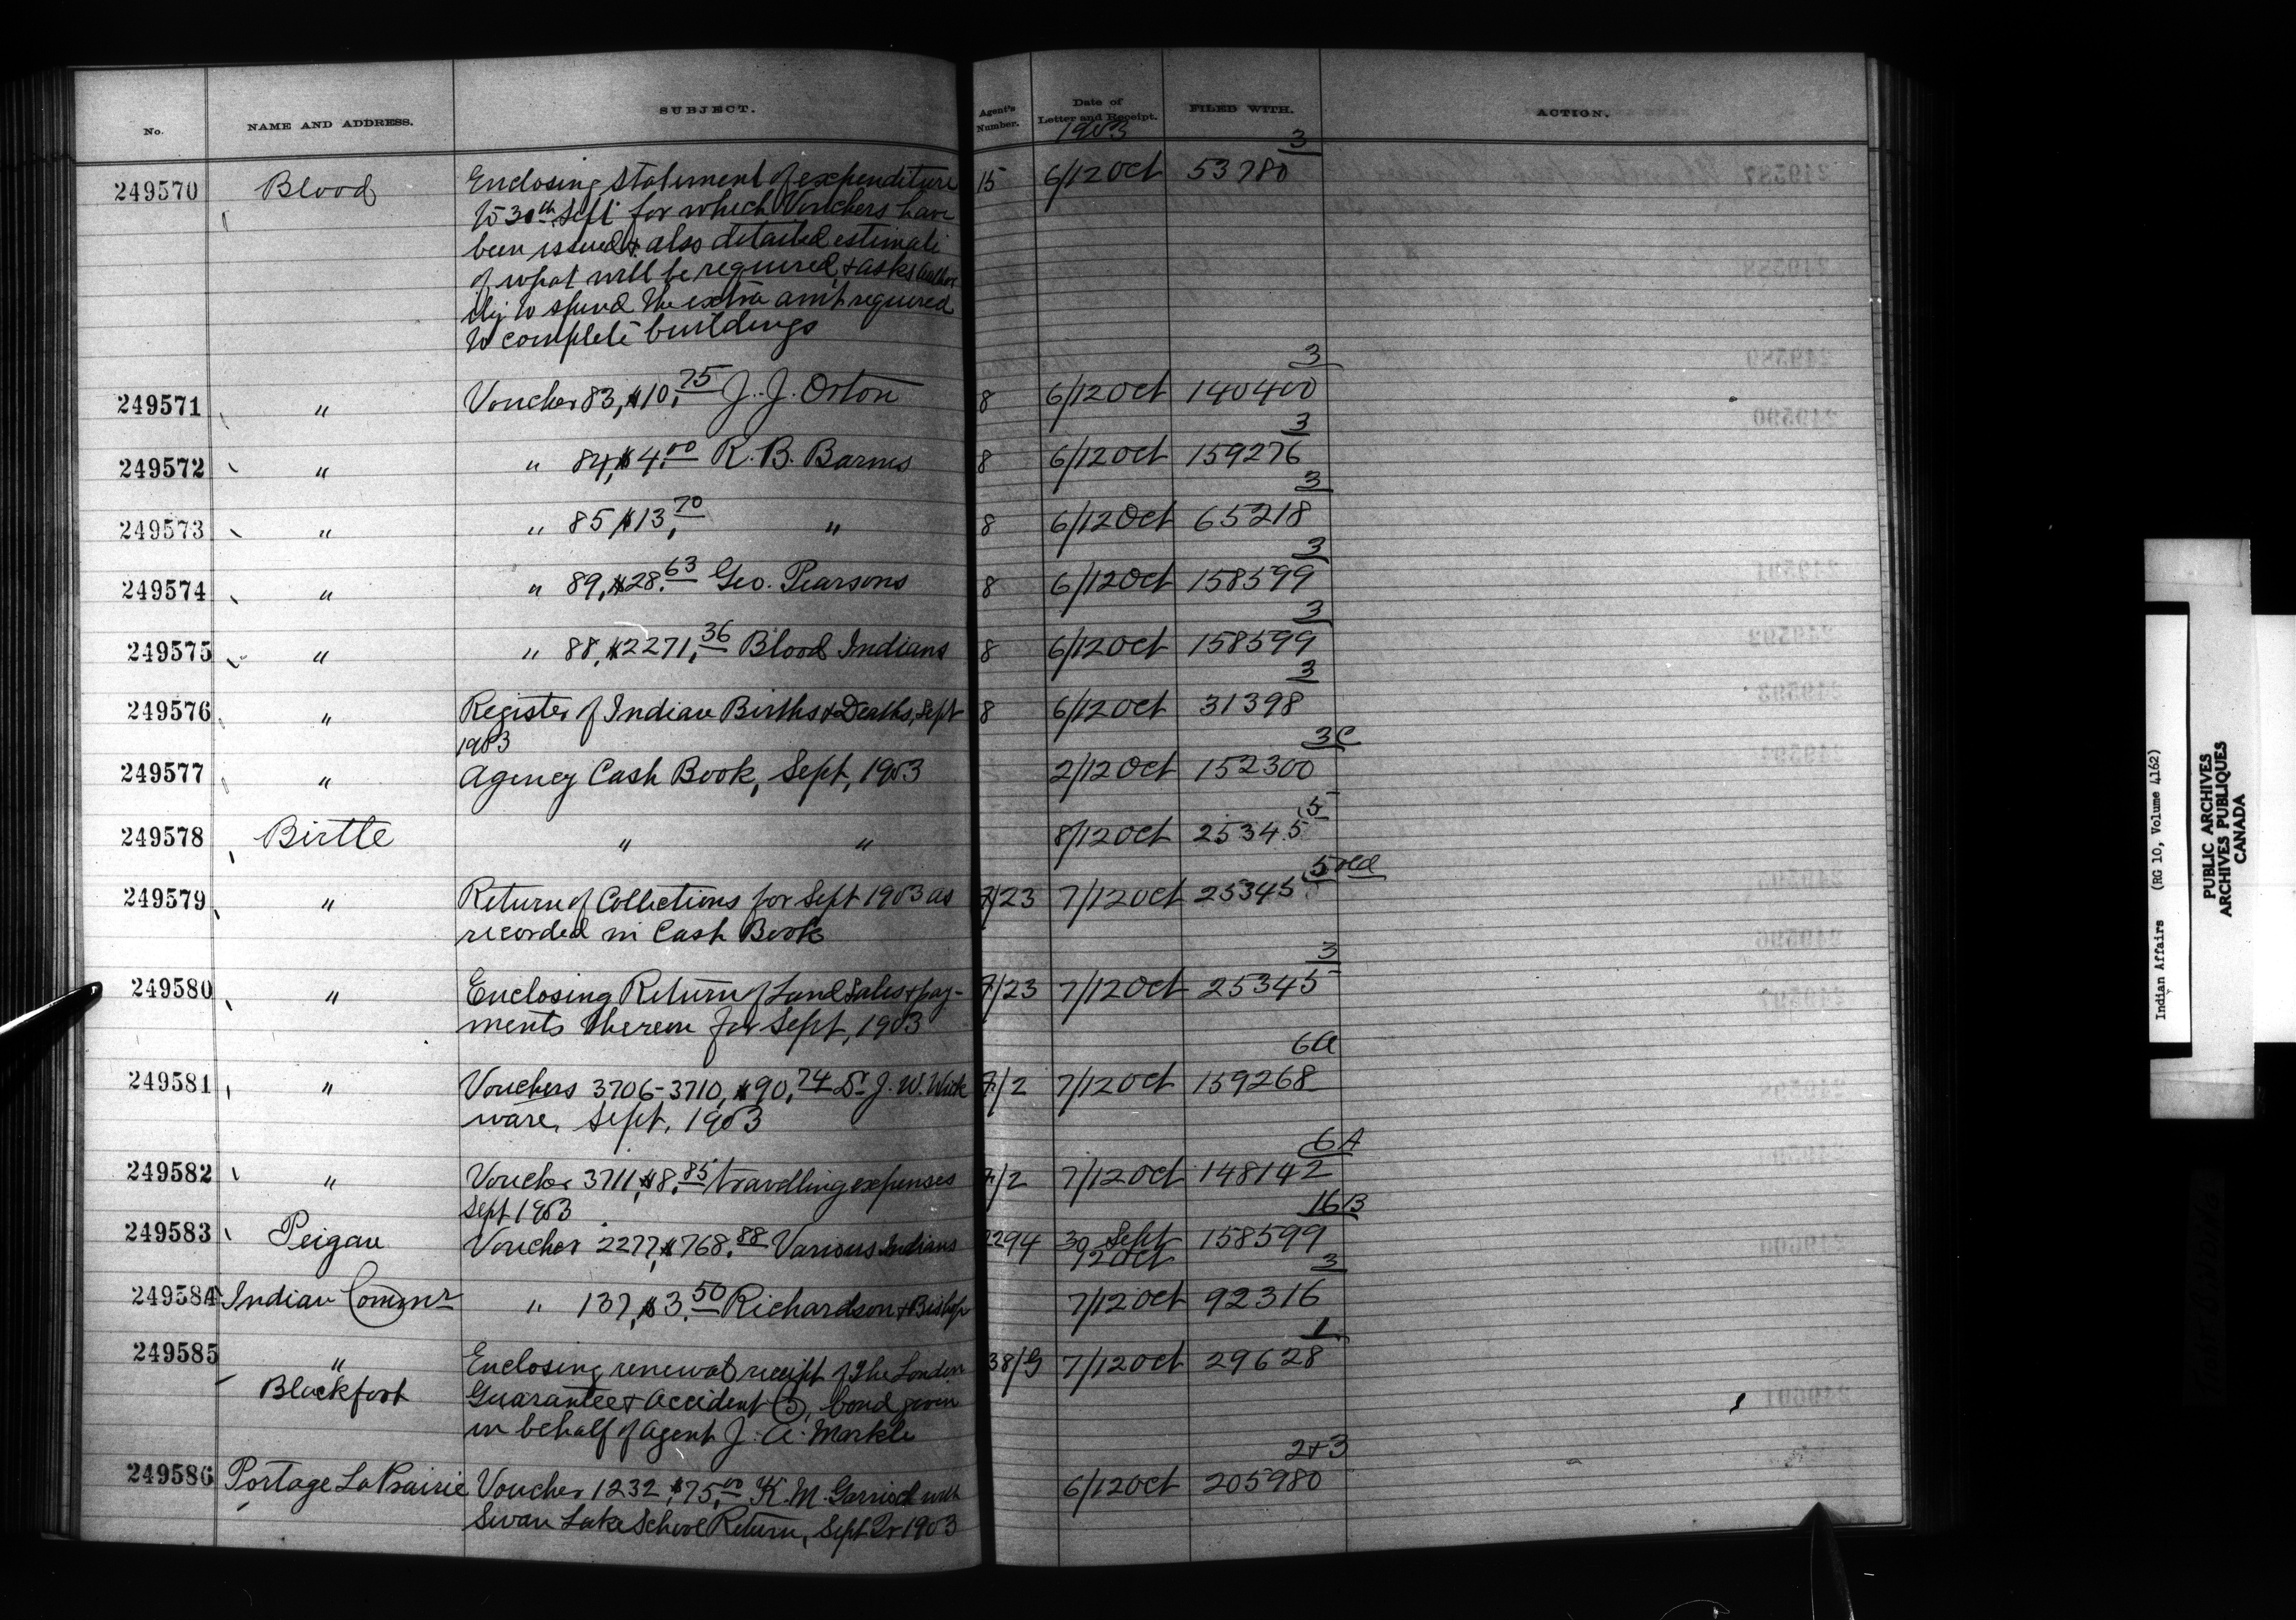 No. NAME AND ADDRESS. SUBJECT. Agent's Number. Date of Letter and Receipt. FILED WITH. ACTION.
1903
3
249570 Blood Enclosing Statement of expenditure 15 6/12 Oct 53780
to 30th Sept for which Vouchers have
been issued & also detailed estimate
of what will be required & asks author
ity to spend the extra am't required
to complete buildings
3
249571 " Voucher 83, $10.75 J. J. Orton 8 6/12 Oct 140400
3
249572 " " 84, $4.00 R. B. Barnes 8 6/12 Oct 159276
3
249573 " " 85, $13.70 " 8 6/12 Oct 65218
3
249574 " " 89, $28.63 Geo. Pearsons 8 6/12 Oct 158599
3
249575 " " 88, $2271.36 Blood Indians 8 6/12 Oct 158599
3
249576 " Register of Indian Births & Deaths, Sept 8 6/12 Oct 31398
1903
3C
249577 " Agency Cash Book, Sept, 1903 2/12 Oct 152300
5
249578 Birtle " " 8/12 Oct 25345
5 old
249579 " Return of Collections for Sept 1903 as 7/23 7/12 Oct 25345
recorded in Cash Book
3
249580 " Enclosing Return of Land Sales & pay- 7/23 7/12 Oct 25345
ments thereon for Sept, 1903
6A
249581 " Vouchers 3706-3710, $90.74 Dr J. W. Wick 7/2 7/12 Oct 159268
ware, Sept, 1903
6A
249582 " Voucher 3711, $8.85 travelling expenses 7/2 7/12 Oct 148142
Sept 1903
16B
249583 Peigan Voucher 2277, $768.88 Various Indians 2294 30 Sept 158599
12 Oct
3
249584 Indian Commr " 137, $3.50 Richardson & Bishop 7/12 Oct 92316
1
249585 " Enclosing renewal receipt of The London 38/G 7/12 Oct 29628
Blackfoot Guarantee & Accident Co, bond given
in behalf of Agent J. A. Markle
2+3
249586 Portage La Prairie Voucher 1232, $75.00 K. M. Garrioch with 6/12 Oct 205980
Swan Lake School Return, Sept Qr 1903
Indian Affairs (RG 10, Volume 4162)
PUBLIC ARCHIVES
ARCHIVES PUBLIQUES
CANADA